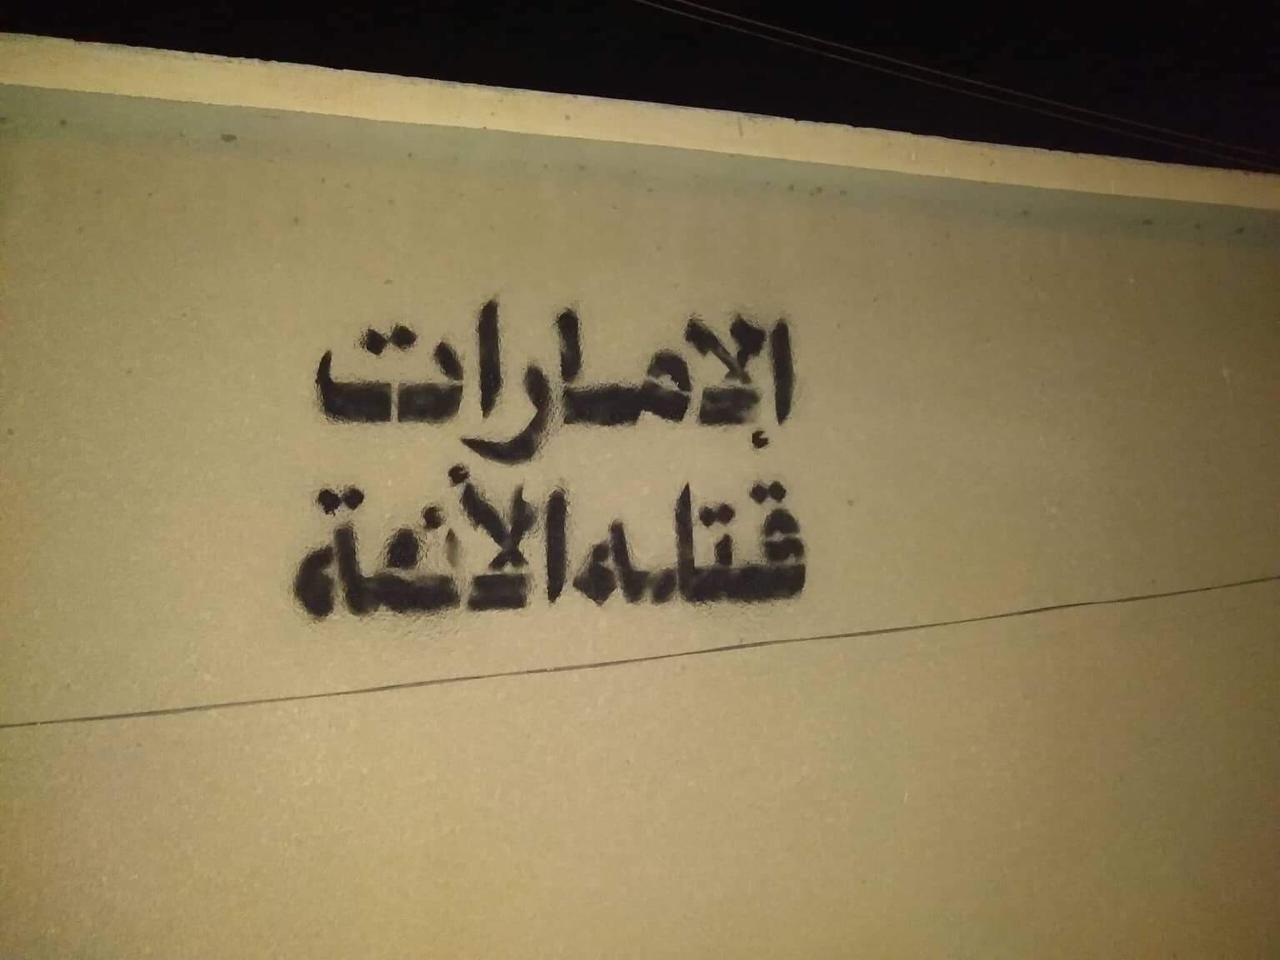 الإمارات
قتله الأئمة